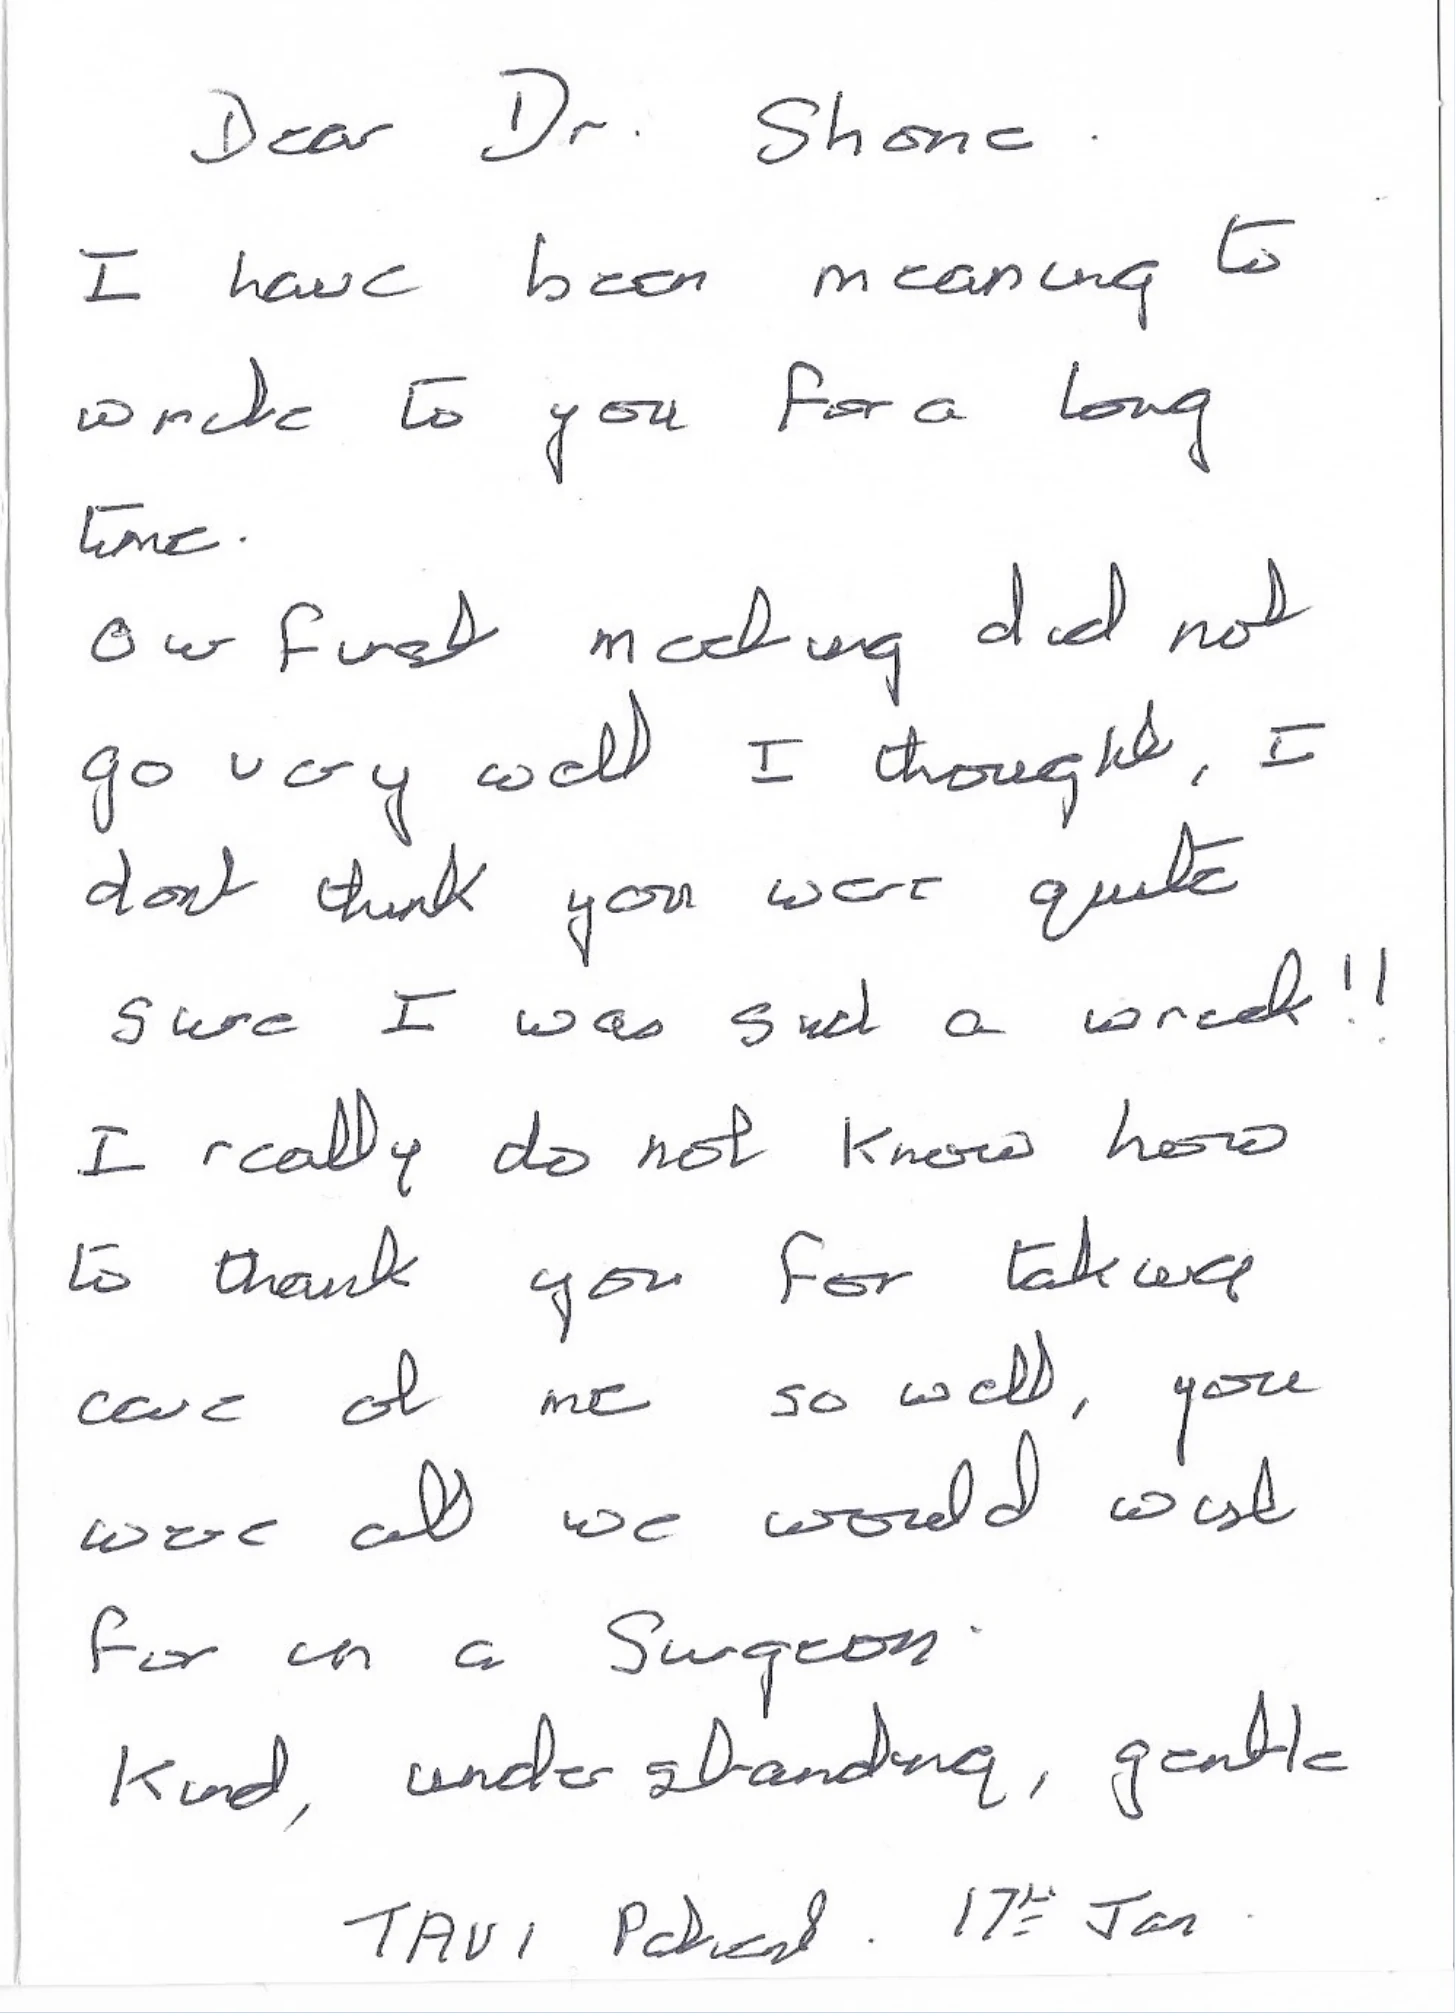 Dear Dr. Shone.
I have been meaning to
write to you for a long
time.
Our first meeting did not
go very well I thought, I
dont think you were quite
sure I was such a wreck!!
I really do not know how
to thank you for taking
care of me so well, you
were all we would wish
for in a Surgeon.
Kind, understanding, gentle
TAVI Patient. 17th Jan.